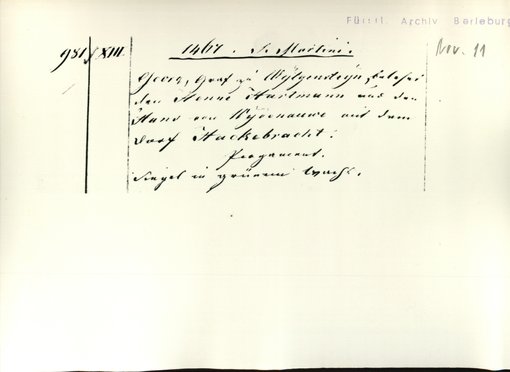 Fürstl. Archiv Berleburg
981 XIII. 1467. S. Martini. Nov. 11
Georg, Graf zu Wytgensteyn, belehnt
den Henne Hartmann und den
Hans von Wydenauwe mit dem
Dorf Hackebracht.
Pergament.
Siegel in grünem Wachs.